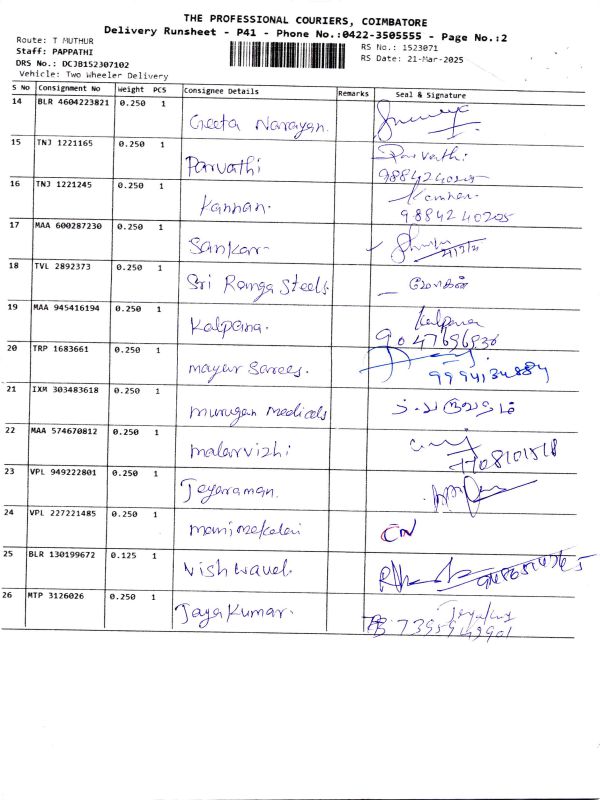 THE PROFESSIONAL COURIERS, COIMBATORE
Delivery Runsheet - P41 - Phone No.:0422-3505555 - Page No.:2
Route: T MUTHUR
RS No.: 1523071
Staff: PAPPATHI
RS Date: 21-Mar-2025
DRS No.: DCJB152307102
Vehicle: Two Wheeler Delivery
S No Consignment No Weight PCS Consignee Details Remarks Seal & Signature
14 BLR 4604223821 0.250 1
Geeta Narayan.
15 TNJ 1221165 0.250 1
Parvathi Parvathi
9884240205
16 TNJ 1221245 0.250 1
Kannan. Kannan
9884240205
17 MAA 600287230 0.250 1
Sankar.
18 TVL 2892373 0.250 1
Sri Ranga Steels
19 MAA 945416194 0.250 1
Kalpana. Kalpana
9047696936
20 TRP 1683661 0.250 1
mayur Sarees.
21 IXM 303483618 0.250 1
murugan medicals
22 MAA 574670812 0.250 1
malarvizhi
7708101518
23 VPL 949222801 0.250 1
Jeyaraman.
24 VPL 227221485 0.250 1
manimekalai CN
25 BLR 130199672 0.125 1
Vishwavel.
26 MTP 3126026 0.250 1
JayaKumar.